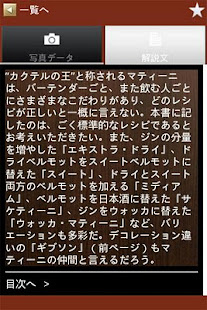 一覧へ
写真データ
解説文
“カクテルの王”と称されるマティーニ
は、バーテンダーごと、また飲む人ごと
にさまざまなこだわりがあり、どのレシ
ピが正しいと一概に言えない。本書に記
したのは、ごく標準的なレシピであると
お考えいただきたい。また、ジンの分量
を増やした「エキストラ・ドライ」、ド
ライベルモットをスイートベルモットに
替えた「スイート」、ドライとスイート
両方のベルモットを加える「ミディア
ム」、ベルモットを日本酒に替えた「サ
ケティーニ」、ジンをウォッカに替えた
「ウォッカ・マティーニ」など、バリ
エーションも多彩だ。デコレーション違
いの「ギブソン」（前ページ）もマ
ティーニの仲間と言えるだろう。
目次へ >